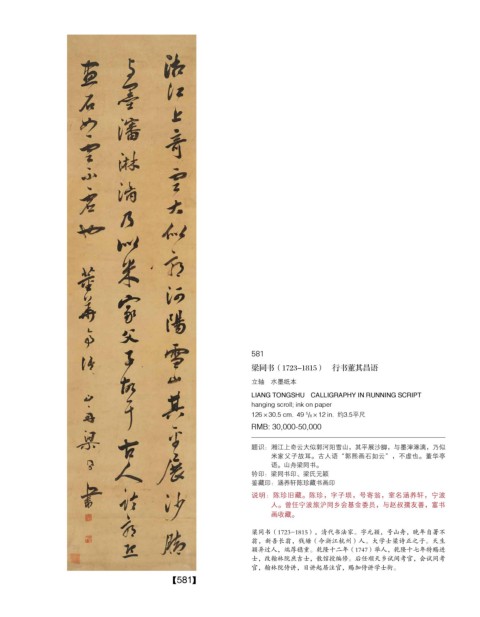 湘江上奇雲大似郭河陽雪山其平展沙腳
与墨瀋淋漓乃似米家父子故耳古人語郭熙
畫石如雲不虛也 董華亭語 山舟梁同書
【581】
581
梁同书（1723–1815） 行书董其昌语
立轴 水墨纸本
LIANG TONGSHU CALLIGRAPHY IN RUNNING SCRIPT
hanging scroll; ink on paper
126 x 30.5 cm. 49 5/8 x 12 in. 约3.5平尺
RMB: 30,000-50,000
题识：湘江上奇云大似郭河阳雪山，其平展沙脚，与墨渖淋漓，乃似
米家父子故耳。古人语“郭熙画石如云”，不虚也。董华亭
语。山舟梁同书。
钤印：梁同书印、梁氏元颖
鉴藏印：涵养轩陈珍藏书画印
说明：陈珍旧藏。陈珍，字子琪，号寄翁，斋名涵养轩，宁波
人。曾任宁波旅沪同乡会基金委员，与赵叔孺友善，富书
画收藏。
梁同书（1723-1815），清代书法家。字元颖，号山舟，晚年自署不
翁，新吾长翁，钱塘（今浙江杭州）人。大学士梁诗正之子。天生
颖异过人，端厚稳重。乾隆十二年（1747）举人，乾隆十七年特赐进
士，改翰林院庶吉士，散馆授编修。后任顺天乡试同考官，会试同考
官，翰林院侍讲，日讲起居注官，赐加侍讲学士衔。